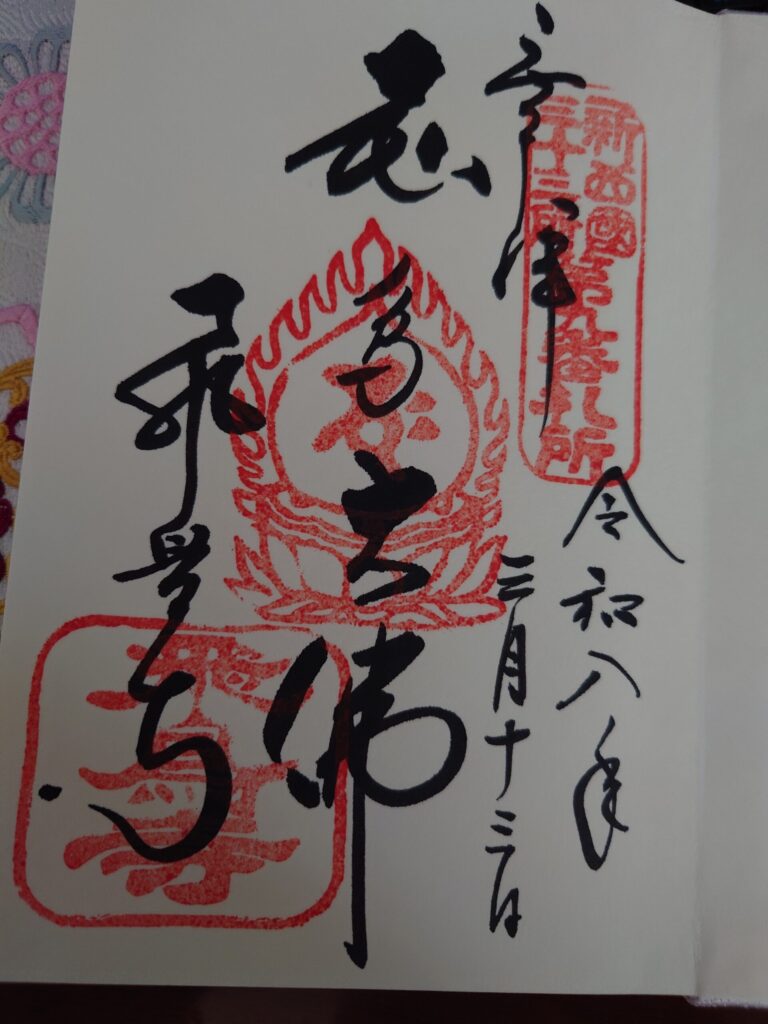 奉拝
新西國
三十三所
第九番札所
令和八年
三月十三日
飛鳥大佛
飛鳥寺
飛鳥寺